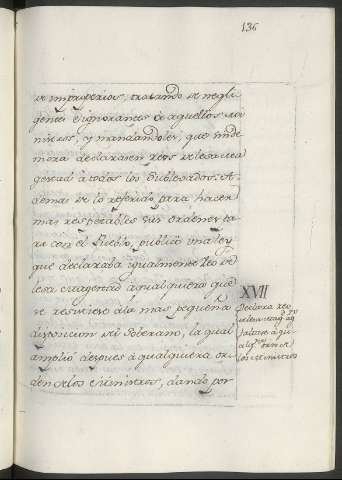 136
de improperios, tratando de negli
gentes e ignorantes á aquellos Mi
nistros, y mandandoles, que sin de
mora declarasen reos de lesa Ma
gestad á todos los Sublevados. A
demas de lo referido para hacer
mas respetables sus ordenes
con el Pueblo, publicó una ley
que declaraba igualmente reo de
lesa Magestad á qualquiera que
se resistiese á la mas pequeña
disposicion del Soberano, la qual
amplió despues á qualquiera or
den de los Ministros, dando por
XVII
Declara reo
de lesa Mag.
á qui
los Ministros